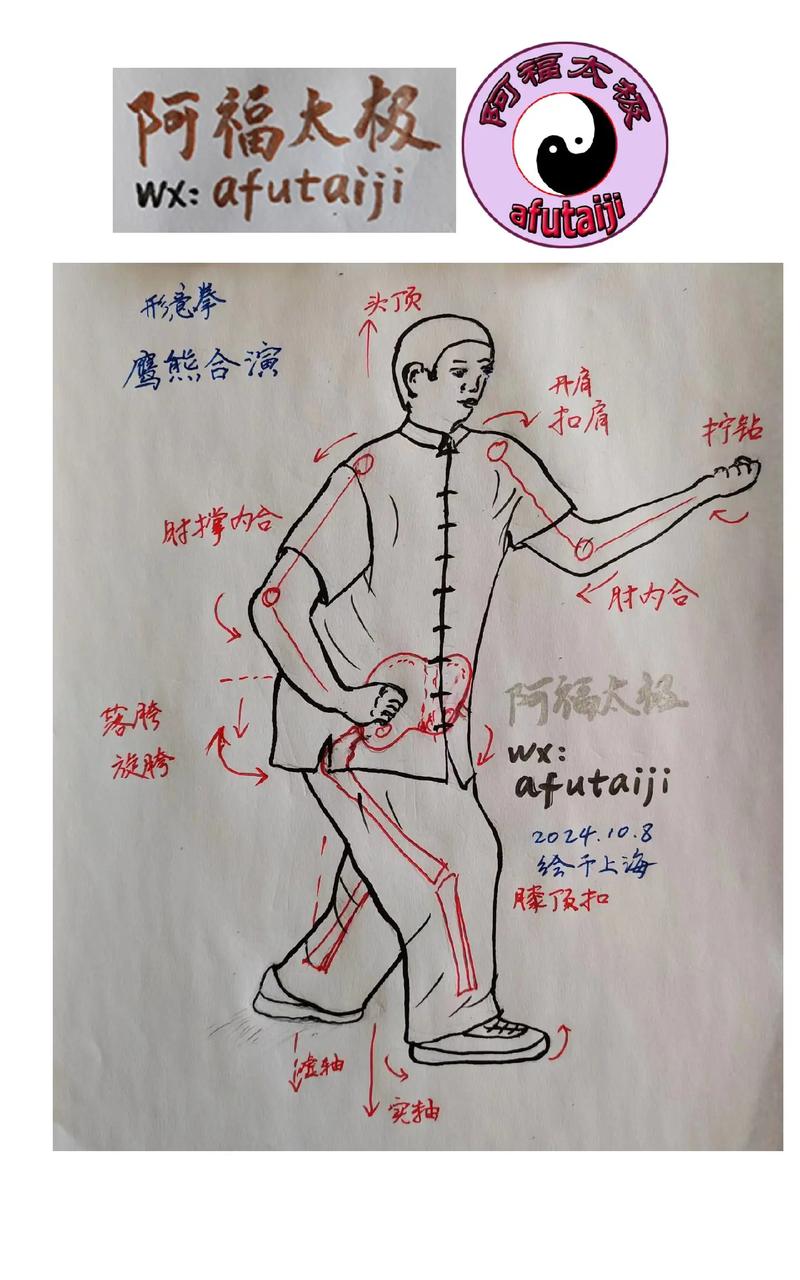 阿福太极
wx: afutaiji
阿福太极
afutaiji
形意拳
鹰熊合演
头顶
开肩
扣肩
拧钻
肘撑内合
肘内合
落胯
旋胯
阿福太极
wx:
afutaiji
2024.10.8
绘于上海
膝顶扣
虚轴
实轴